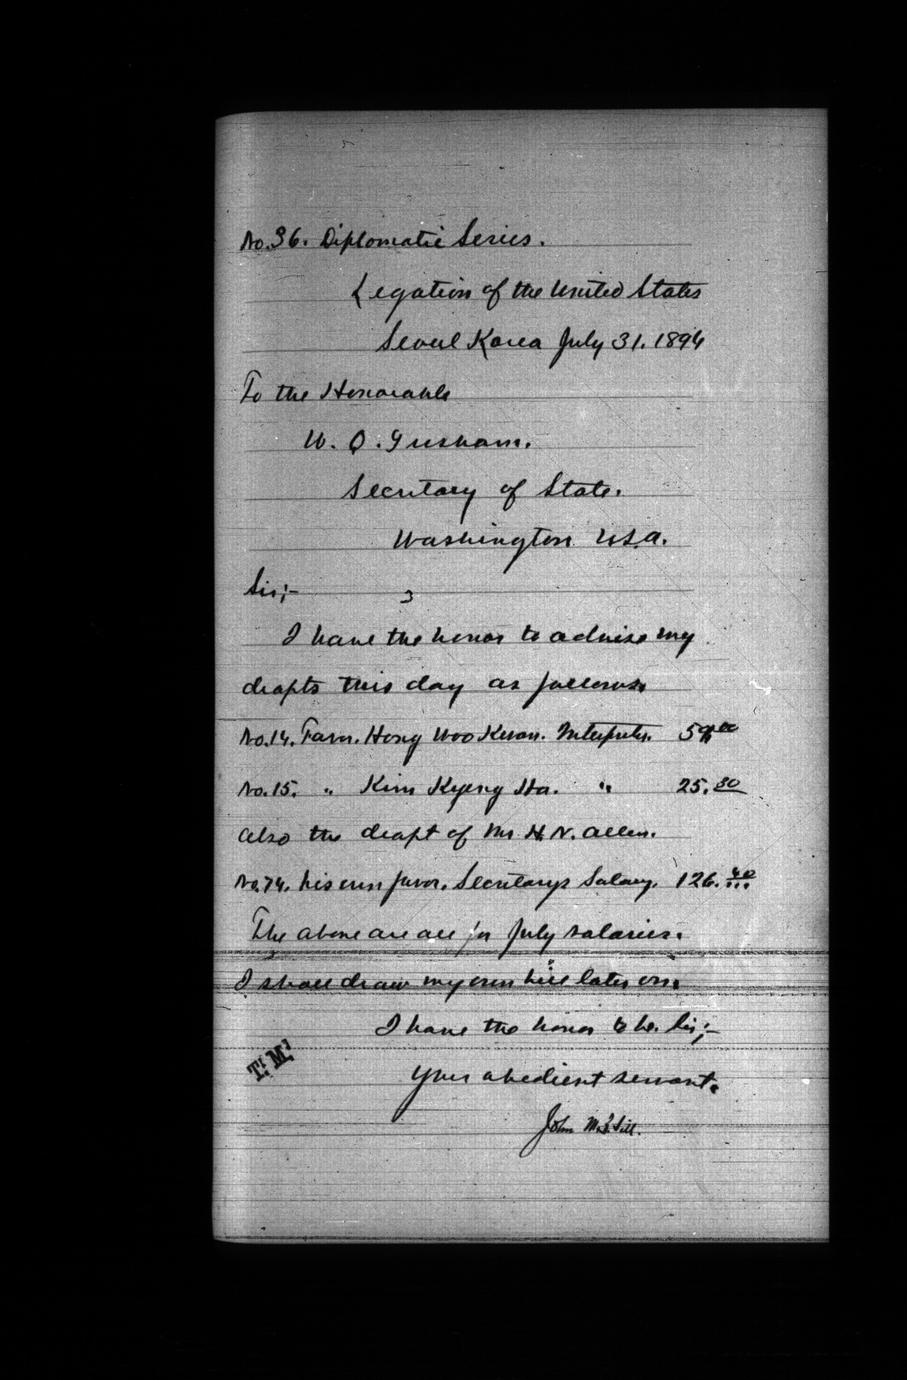 No.36. Diplomatic Series.
Legation of the United States
Seoul Korea July 31. 1894
To the Honorable
W. Q. Gresham.
Secretary of State.
Washington U.S.A.
Sir;-
I have the honor to advise my
drafts this day as follows.
No.14. Favor. Hong Woo Kwan. Interpreter.
No.15. " Kim Kyeng Ha. " 25.30
Also the draft of Mr H. N. Allen.
No.74. his own favor. Secretarys Salary. 126.40
The above are all for July salaries.
I shall draw my own bill later on.
I have the honor to be. Sir;-
Your obedient servant.
John M.B. Sill.
T.M.